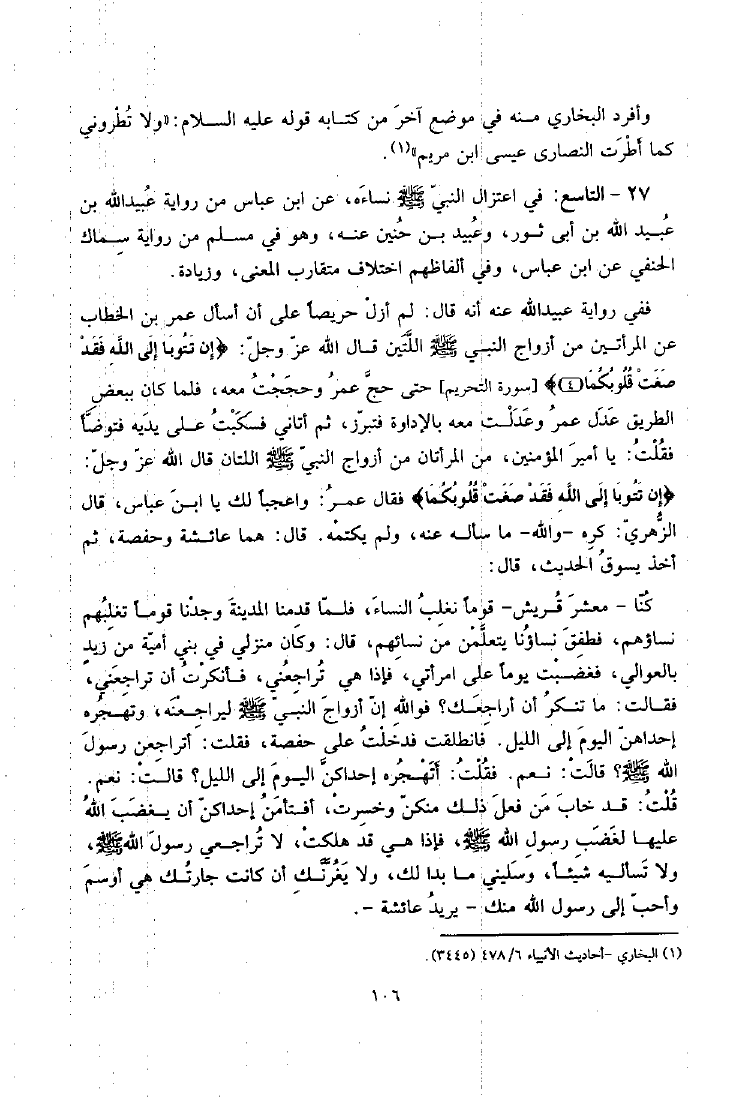 وأفرد البخاري منه في موضع آخرَ من كتابه قوله عليه السلام: «ولا تُطْروني
كما أَطْرَت النصارى عيسى ابن مريم»(١).
٢٧ - التاسع: في اعتزال النبيّ ﷺ نساءَه، عن ابن عباس من رواية عُبيدالله بن
عُبيد الله بن أبى ثور، وعُبيد بن حُنين عنه، وهو في مسلم من رواية سِماك
الحنفي عن ابن عباس، وفي ألفاظهم اختلاف متقارب المعنى، وزيادة.
ففي رواية عبيدالله عنه أنه قال: لم أزلْ حريصاً على أن أسأل عمر بن الخطاب
عن المرأتين من أزواج النبي ﷺ اللَّتَين قال الله عزّ وجلّ: ﴿إِن تَتُوبَا إِلَى اللَّهِ فَقَدْ
صَغَتْ قُلُوبُكُمَا (٤)﴾ [سورة التحريم] حتى حجّ عمرُ وحجَجْتُ معه، فلما كان ببعض
الطريق عَدَل عمرُ وعَدَلْت معه بالإداوة فتبرّز، ثم أتاني فسكَبْتُ على يدَيه فتوضّأ
فقُلْتُ: يا أميرَ المؤمنين، من المرأتان من أزواج النبيّ ﷺ اللتان قال الله عزّ وجلّ:
﴿إِن تَتُوبَا إِلَى اللَّهِ فَقَدْ صَغَتْ قُلُوبُكُمَا﴾ فقال عمرُ: واعجباً لك يا ابنَ عباس، قال
الزُّهريّ: كره -والله- ما سأله عنه، ولم يكتمْه. قال: هما عائشة وحفصة، ثم
أخذ يسوقُ الحديث، قال:
كُنّا - معشرَ قُريش- قوماً نغلِبُ النساءَ، فلمّا قدِمنا المدينةَ وجدْنا قوماً تغلِبُهم
نساؤهم، فطفِقَ نساؤُنا يتعلّمْن من نسائهم، قال: وكان منزلي في بني أميّة من زيدٍ
بالعوالي، فغضبْت يوماً على امرأتي، فإذا هي تُراجعُني، فأنكرْتُ أن تراجعَني،
فقالت: ما تنكرُ أن أراجعَك؟ فوالله إنّ أزواجَ النبيّ ﷺ ليراجعْنَه، وتهجُره
إحداهنّ اليومَ إلى الليل. فانطلقت فدخلْتُ على حفصة، فقلت: أتراجعن رسولَ
الله ﷺ؟ قالَتْ: نعم. فقُلْتُ: أتَهْجُره إحداكنَّ اليومَ إلى الليل؟ قالَتْ: نعم.
قُلْتُ: قد خابَ مَن فعلَ ذلك منكنّ وخسِرتْ، أفتأمَنُ إحداكنّ أن يغضَبَ اللهُ
عليها لغَضَبِ رسولِ الله ﷺ، فإذا هي قد هلكتْ، لا تُراجعي رسولَ الله ﷺ،
ولا تَسأليه شيئاً، وسَليني ما بدا لك، ولا يَغُرَّنَّك أن كانت جارتُك هي أوسمَ
وأحبّ إلى رسول الله منك - يريدُ عائشة -.
(١) البخاري -أحاديث الأنبياء ٤٧٨/٦ (٣٤٤٥).
١٠٦